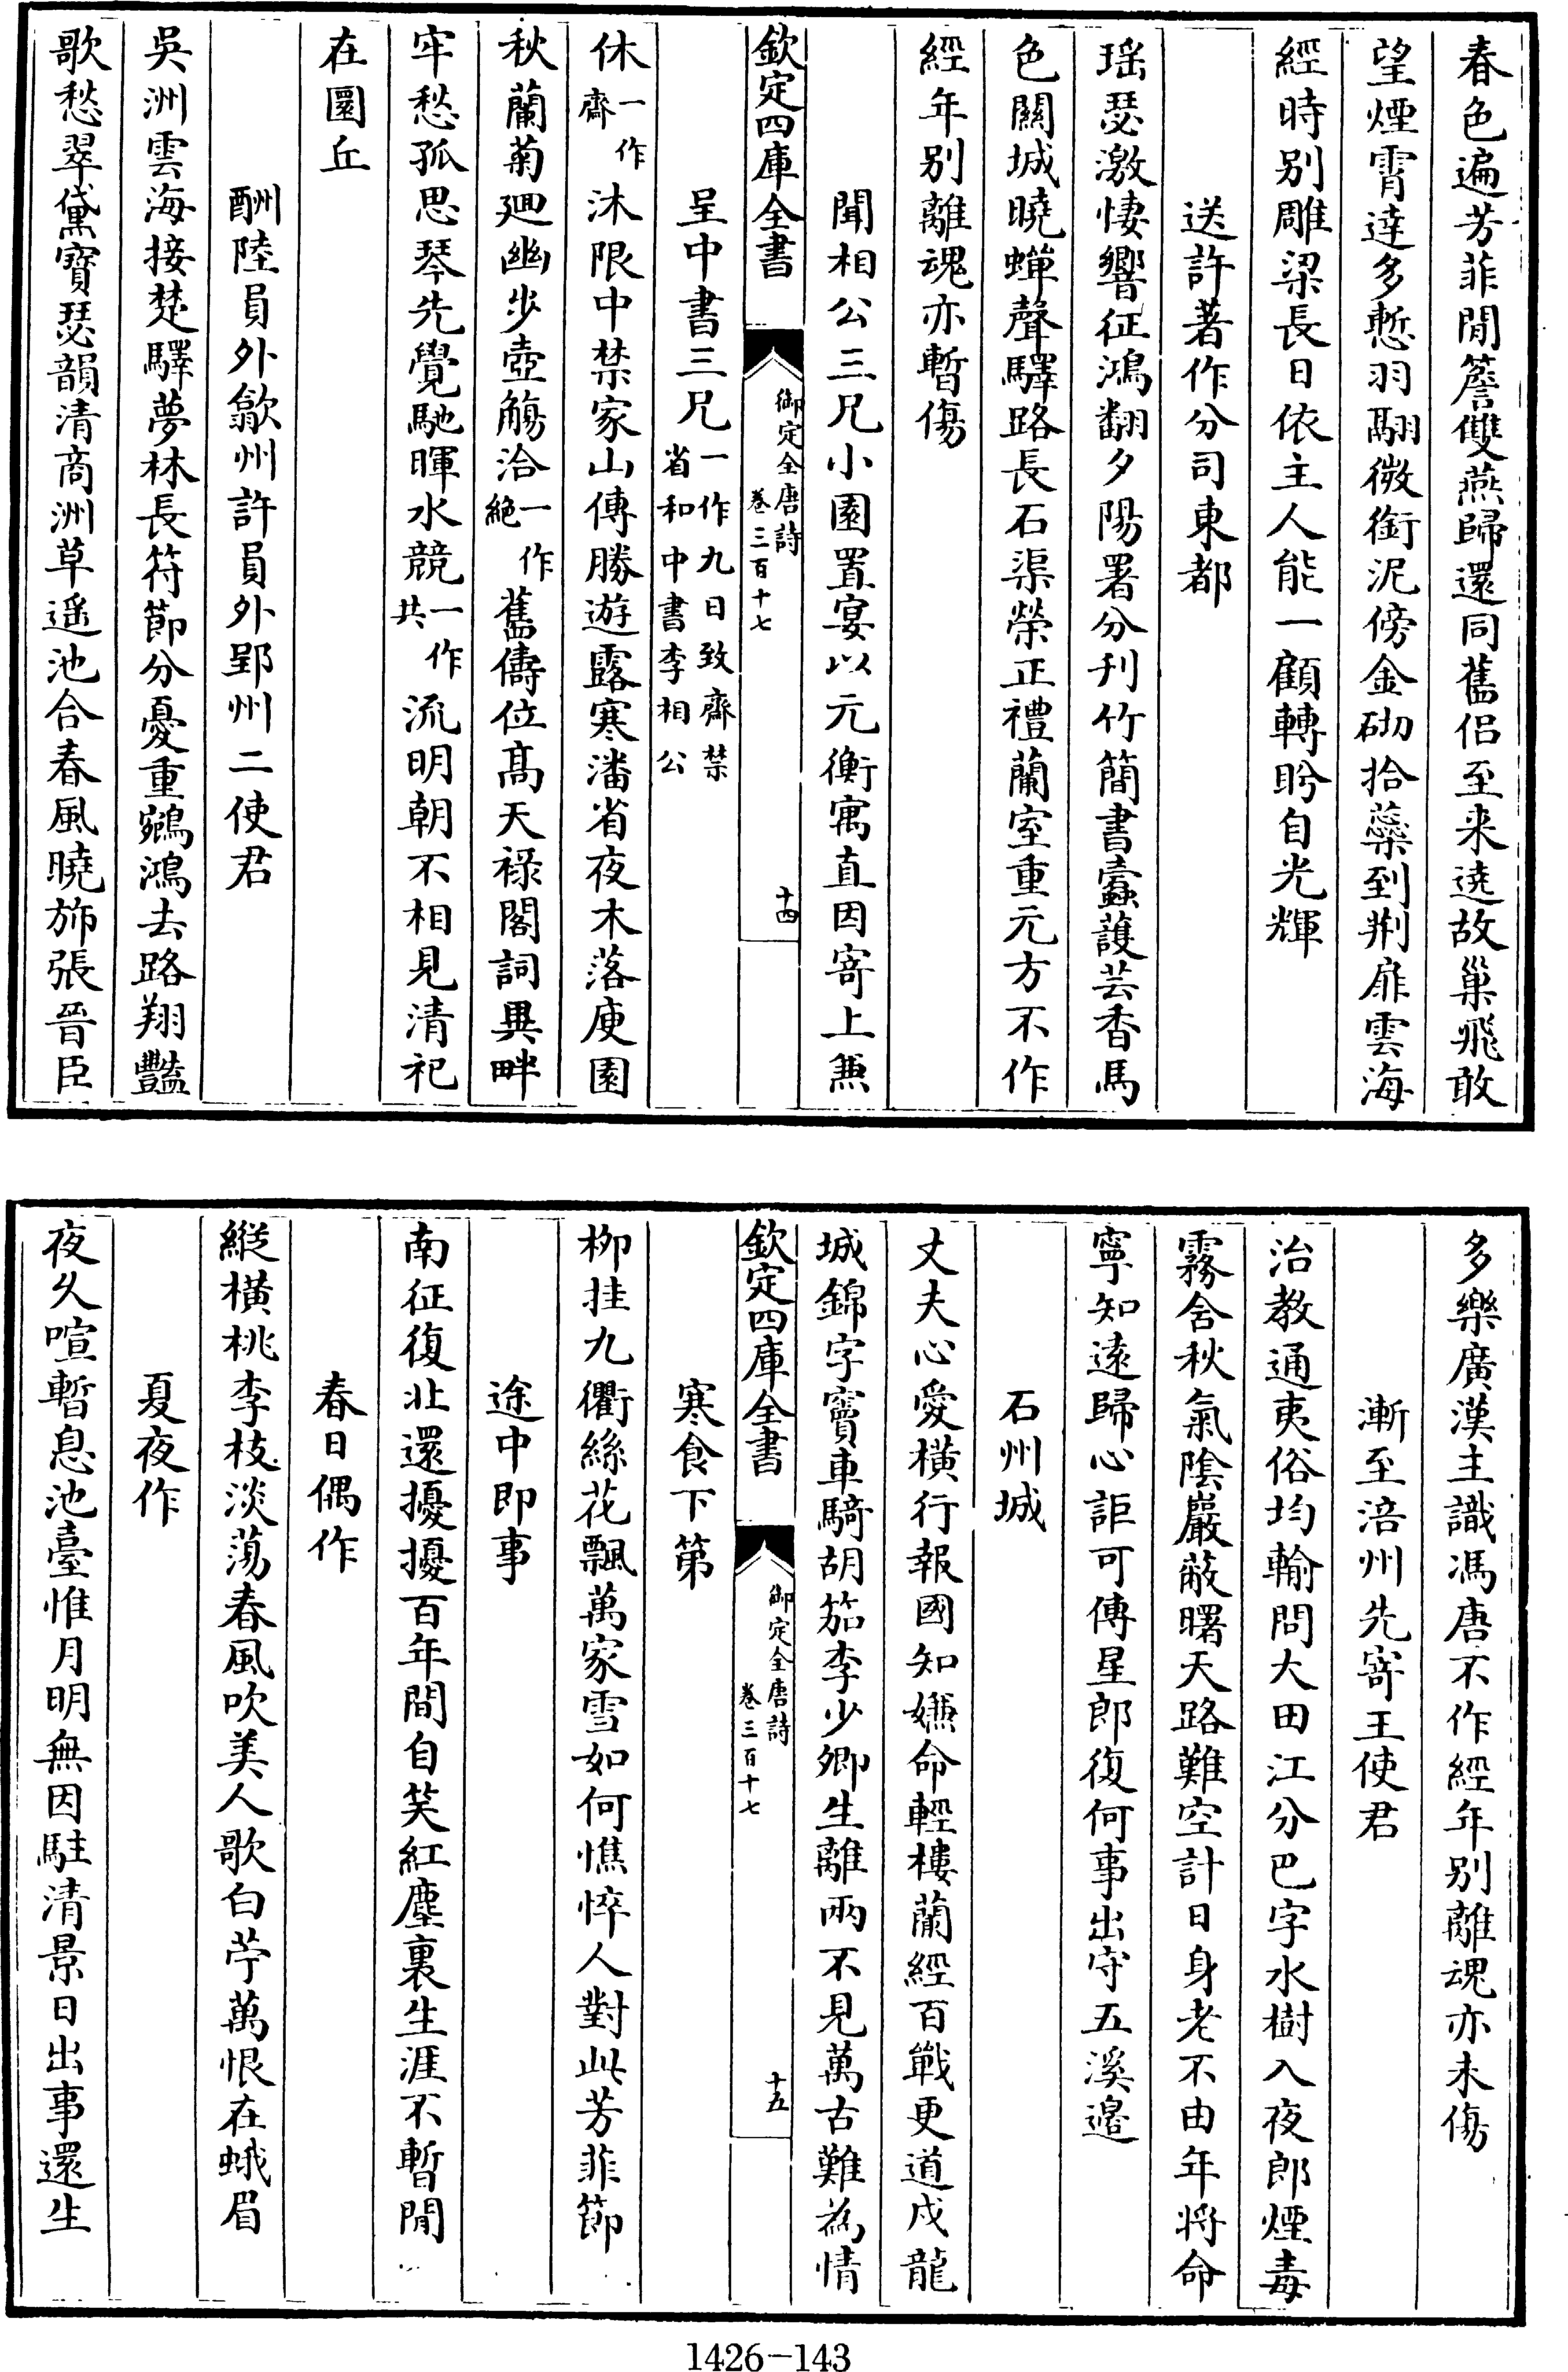 春色遍芳菲閒簷雙燕歸還同舊侣至来遶故巢飛敢
望煙霄達多慙羽翮微銜泥傍金砌拾蘂到荆扉雲海
經時别雕梁長日依主人能一顧轉盻自光輝
送許著作分司東都
瑶瑟激悽響征鴻翻夕陽署分刋竹簡書蠧護芸香馬
色闗城曉蟬聲驛路長石渠榮正禮蘭室重元方不作
經年别離魂亦暫傷
聞相公三兄小園置宴以元衡寓直因寄上兼
欽定四庫全書
御定全唐詩
卷三百十七
十四
呈中書三兄一作九日致齋禁
省和中書李相公
休一作
齋沐限中禁家山傳勝遊露寒潘省夜木落庾園
秋蘭菊廻幽步壺觴洽一作
絶舊儔位髙天禄閣詞異畔
牢愁孤思琴先覺馳暉水競一作
共流明朝不相見清祀
在圜丘
酬陸員外歙州許員外郢州二使君
吳洲雲海接楚驛夢林長符節分憂重鵷鴻去路翔豔
歌愁翠黛寶瑟韻清商洲草遥池合春風曉斾張晉臣
多樂廣漢主識馮唐不作經年别離魂亦未傷
漸至涪州先寄王使君
治教通夷俗均輸問大田江分巴字水樹入夜郎煙毒
霧含秋氣陰巖蔽曙天路難空計日身老不由年將命
寧知逺歸心詎可傳星郎復何事出守五溪邉
石州城
丈夫心愛横行報國知嫌命輕樓蘭經百戰更道戍龍
城錦字竇車騎胡笳李少卿生離兩不見萬古難為情
欽定四庫全書
御定全唐詩
卷三百十七
十五
寒食下第
栁挂九衢絲花飄萬家雪如何憔悴人對此芳菲節
途中即事
南征復北還擾擾百年間自笑紅塵裏生涯不暫閒
春日偶作
縱横桃李枝淡蕩春風吹美人歌白苧萬恨在蛾眉
夏夜作
夜久喧暫息池臺惟月明無因駐清景日出事還生
1426-143